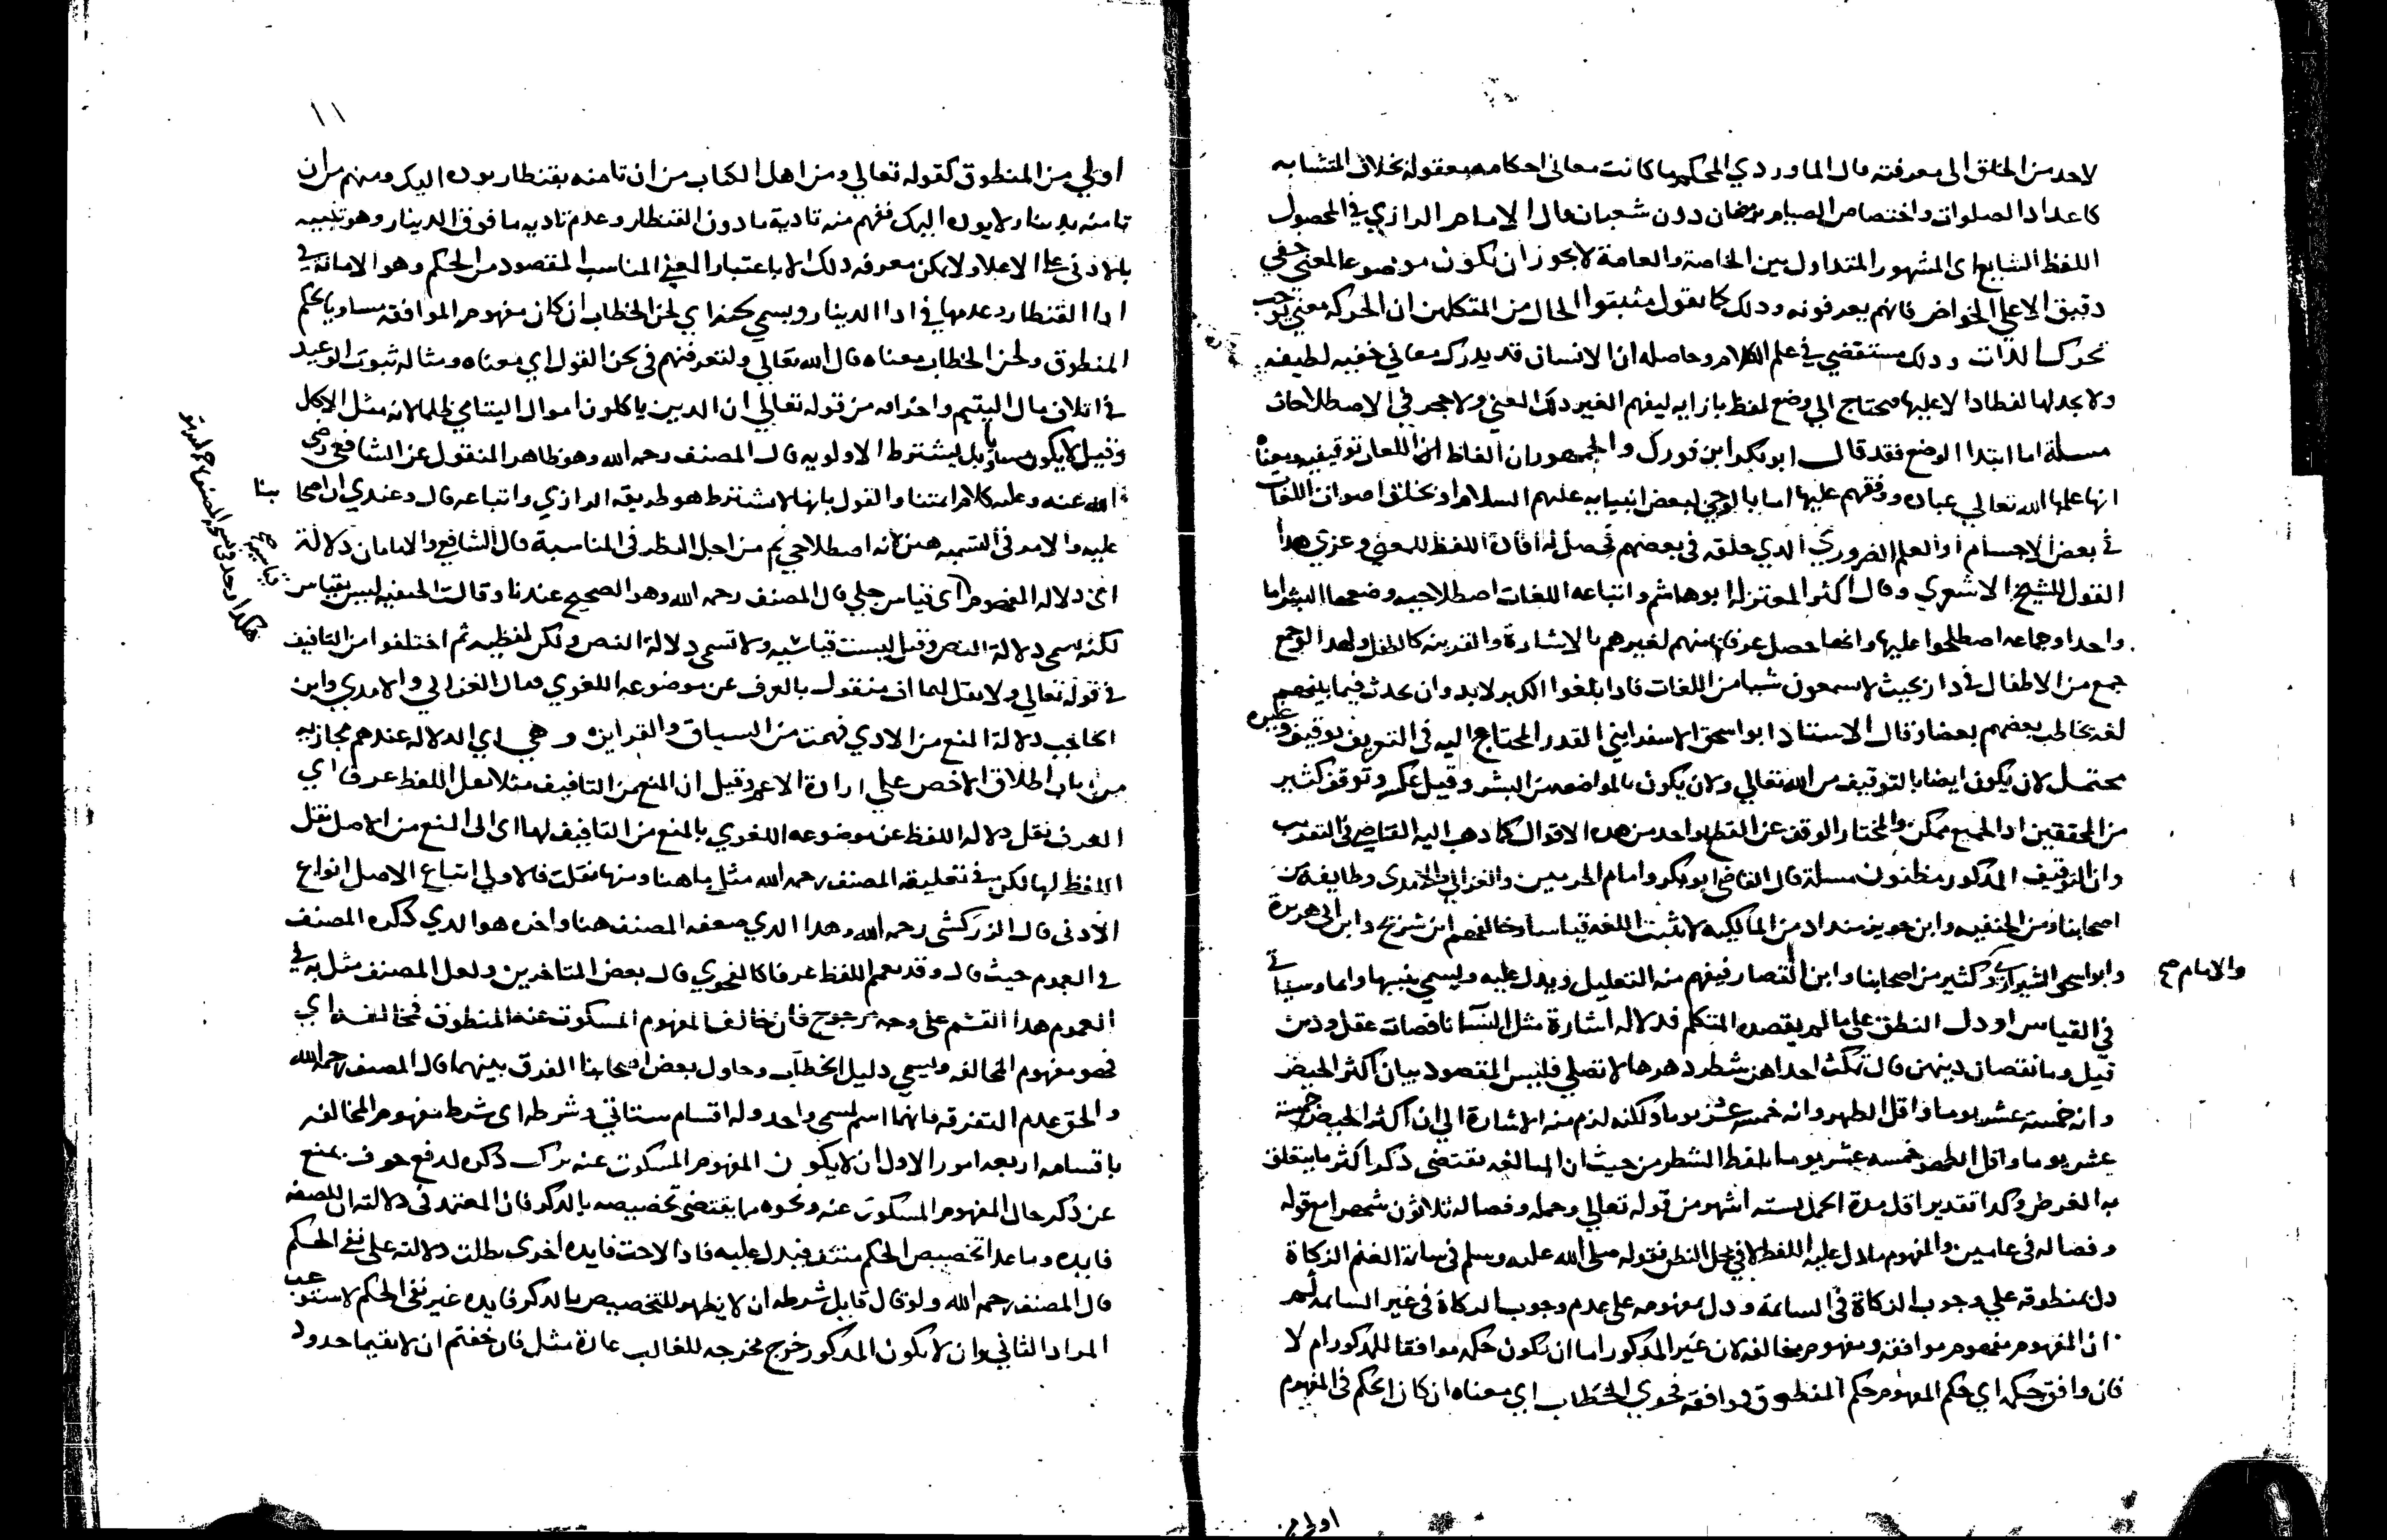 لاحد من الخلق الى معرفته قال الماوردي المحكم ما كانت معاني احكامه معقولة بخلاف المتشابه
كاعداد الصلوات واختصاص الصيام برمضان دون شعبان قال الامام الرازي في المحصول
اللفظ الشايع اى المشهور المتداول بين الخاصة والعامة لا يجوز ان يكون موضوعا لمعنى خفي
دقيق الا على الخواص فانهم يعرفونه وذلك كما يقول مثبتوا الحال من المتكلمين ان الحركة معنى يوجب
تحرك الذات وذلك مستقصي في علم الكلام وحاصله ان الانسان قد يدرك معاني خفيه لطيفه
ولا يجد لها لفظا دالا عليها فيحتاج الى وضع لفظ بازايه ليفهم الغير ذلك المعني ولا حجر في الاصطلاحات
مسلة اما ابتدا الوضع فقد قال ابو بكر ابن فورك والجمهور ان الفاظ اللغات توقيفيه ومعناه
انها علمها الله تعالي عباده ووقفهم عليها اما بالوحي لبعض انبيايه عليهم السلام او بخلق اصوات اللغات
في بعض الاجسام او العلم الضروري الذي خلقه في بعضهم تحصل له افادة اللفظ للمعني وعزي هذا
القول للشيخ الاشعري وقال اكثر المعتزلة ابو هاشم واتباعه اللغات اصطلاحيه وضعها البشر اما
واحد او جماعه اصطلحوا عليها وانما حصل عرفانه منهم لغيرهم بالاشارة والقرينه كالطفل ولهذا لو جمع
جمع من الاطفال في دار بحيث لا يسمعون شيا من اللغات فاذا بلغوا الكبر لابد وان يحدث فيما بينهم
لغه يخاطب بعضهم بعضا وقال الاستاذ ابو اسحق الاسفرايني القدر المحتاج اليه في التعريف توقيف وغيره
محتمل لان يكون ايضا بالتوقيف من الله تعالي ولان يكون بالمواضعه من البشر وقيل عكسه وتوقف كثير
من المحققين اذ الجميع ممكن والمختار الوقف عن القطع بواحد من هذه الاقوال كما ذهب اليه القاضي في التقريب
وان التوقيف المذكور مظنون مسلة قال القاضي ابو بكر وامام الحرمين والغزالي والامدى وطايفة من
اصحابنا ومن الحنفيه وابن خويز منداد من المالكيه لا تثبت اللغه قياسا وخالفهم ابن شريح وابن ابى هريرة
وابو اسحق الشيرازي وكثير من اصحابنا وابن القصار فيفهم منه التعليل ويدل عليه ويسمي تنبيها وايما وسياتي
والامام صح
في القياس او دل النطق على ما لم يقصده المتكلم فدلاله اشارة مثل النسا ناقصات عقل ودين
قيل وما نقصان دينهن قال تمكث احداهن شطر دهرها لا تصلي فليس المقصود بيان اكثر الحيض
وانه خمسة عشر يوما واقل الطهر وانه خمسة عشر يوما ولكنه لزم منه الاشارة الي ان اكثر الحيض خمسة
عشر يوما واقل الطهر خمسه عشر يوما بلفظ الشطر من حيث ان المبالغه تقتضى ذكر اكثر ما يتعلق
به الغرض وكذا تقدير اقل مدة الحمل بسته اشهر من قوله تعالي وحمله وفصاله ثلاثون شهرا مع قوله
وفصاله في عامين والمفهوم ما دل عليه اللفظ لا في محل النطق فقوله صلى الله عليه وسلم في سائمة الغنم الزكاة
دل بمنطوقه علي وجوب الزكاة في السائمة ودل بمفهومه على عدم وجوب الزكاة في غير السائمه ثم
ان المفهوم مفهوم موافقه ومفهوم مخالفه لان غير المذكور اما ان يكون حكمه موافقا للمذكور ام لا
فان وافق حكمه اي حكم المفهوم حكم المنطوق فموافقه فحوي الخطاب اي معناه ان كان الحكم في المفهوم
اولى من
١١
اولي من المنطوق كقوله تعالي ومن اهل الكتاب من ان تامنه بقنطار يوده اليك ومنهم من ان
تامنه بدينار لا يوده اليك ففهم منه تادية ما دون القنطار وعدم تاديه ما فوق الدينار وهو تنبيه
بالادنى على الاعلا ولا يمكن معرفه ذلك الا باعتبار المعني المناسب المقصود من الحكم وهو الامانة في
ادا القنطار وعدمها في ادا الدينار ويسمي لحنه اي لحن الخطاب ان كان مفهوم الموافقه مساويا لحكم
المنطوق ولحن الخطاب معناه قال الله تعالي ولتعرفنهم في لحن القول اي معناه ومثاله ثبوت الوعيد
في اتلاف مال اليتيم واحراقه من قوله تعالي ان الذين ياكلون اموال اليتامي ظلما لانه مثل الاكل
وقيل لا يكون مساويا بل يشترط الاولويه قال المصنف رحمه الله وهو ظاهر المنقول عن الشافعي رضى
الله عنه وعليه كلام ايمتنا والقول بانها لا تشترط هو طريقه الرازي واتباعه قال وعندي ان اصحابنا
عليه والامر في التسميه هين لانه اصطلاحي ثم من اجل النظر في المناسبة قال الشافعي والامامان دلالة
اي دلالة المفهوم اى قياس جلي قال المصنف رحمه الله وهو الصحيح عندنا وقالت الحنفيه ليس بقياس
لكنه يسمى دلالة النص وقيل ليست قياسيه ولا تسمى دلالة النص ولكن لفظيه ثم اختلفوا من التافيف
في قوله تعالي ولا تقل لهما اف منقول بالعرف عن موضوعه اللغوي فقال الغزالي والامدي وابن
الحاجب دلالة المنع من الاذي فهمت من السياق والقراين وهي اي الدلاله عندهم مجازيه
من باب اطلاق الاخص علي ارادة الاعم وقيل ان المنع من التافيف مثلا نقل اللفظ عرفا اي
العرف نقل دلاله اللفظ عن موضوعه اللغوي بالمنع من التافيف لهما اى الى المنع من الاصل نقل
اللفظ لها لكن في تعليقه المصنف رحمه الله مثل ما هنا ومنها نقلت فالاولي اتباع الاصل انواع
الاذى قال الزركشى رحمه الله وهذا الذي ضعفه المصنف هنا واخره هو الذي ذكره المصنف
في العموم حيث قال وقد يعم اللفظ عرفا كالفحوي قال بعض المتاخرين ولعل المصنف مثل به في
العموم هذا القسم على وجه مرجوح فان خالف المفهوم المسكوت عنه المنطوق فمخالفه اي
فهو مفهوم المخالفه ويسمي دليل الخطاب وحاول بعض اصحابنا الفرق بينهما قال المصنف رحمه الله
والحق عدم التفرقه فانهما اسم لمسمى واحد وله اقسام ستاتي وشرطه اى شرط مفهوم المخالفه
باقسامه اربعه امور الاول ان لا يكون المفهوم المسكوت عنه ترك ذكره لدفع خوف يمنع
عن ذكر حال المفهوم المسكوت عنه ونحوه مما يقتضى تخصيصه بالذكر فان المعتمد في دلالته ان للصفه
فايده وما عدا تخصيص الحكم منتف فيدل عليه فاذا لاحت فايده اخرى بطلت دلالته على نفي الحكم
قال المصنف رحمه الله ولو قال قايل شرطه ان لا يظهر للتخصيص بالذكر فايده غير نفى الحكم لاستوعب
المراد الثاني وان لا يكون المذكور خرج مخرجه للغالب عادة مثل فان خفتم ان لا يقيما حدود